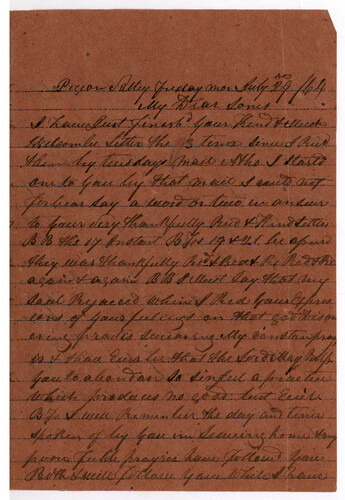 Pigeon Valley Friday mor July 29 /64
My Dear Sones
I have Just finishd Your Kind & Much
Welcombe letter the 13 time since I Recd
them by tuesdays mail Altho I Started
one to you by that mail I could not
forbear say a word or two in answer
to your very thankfully Recd & Kind letter
B B the 17 Instant B Jos 19 & 21 be assurd
they was thankfully Recd Read & Re Read &
again & again B B I Must Say that my
Soal Rejoiced When I Red Your Expre
sions of your feelings on that god dishon
oring practis Swearing My constan pray
is & shall Ever be that the Lord May help
You to abandon so sinful a practice
Which produces no good but Evil
B Jos I well Remember the day and time
spoken of by you in leaving home & my
poore feble prayrs have follow You
Both & will follow You While I have